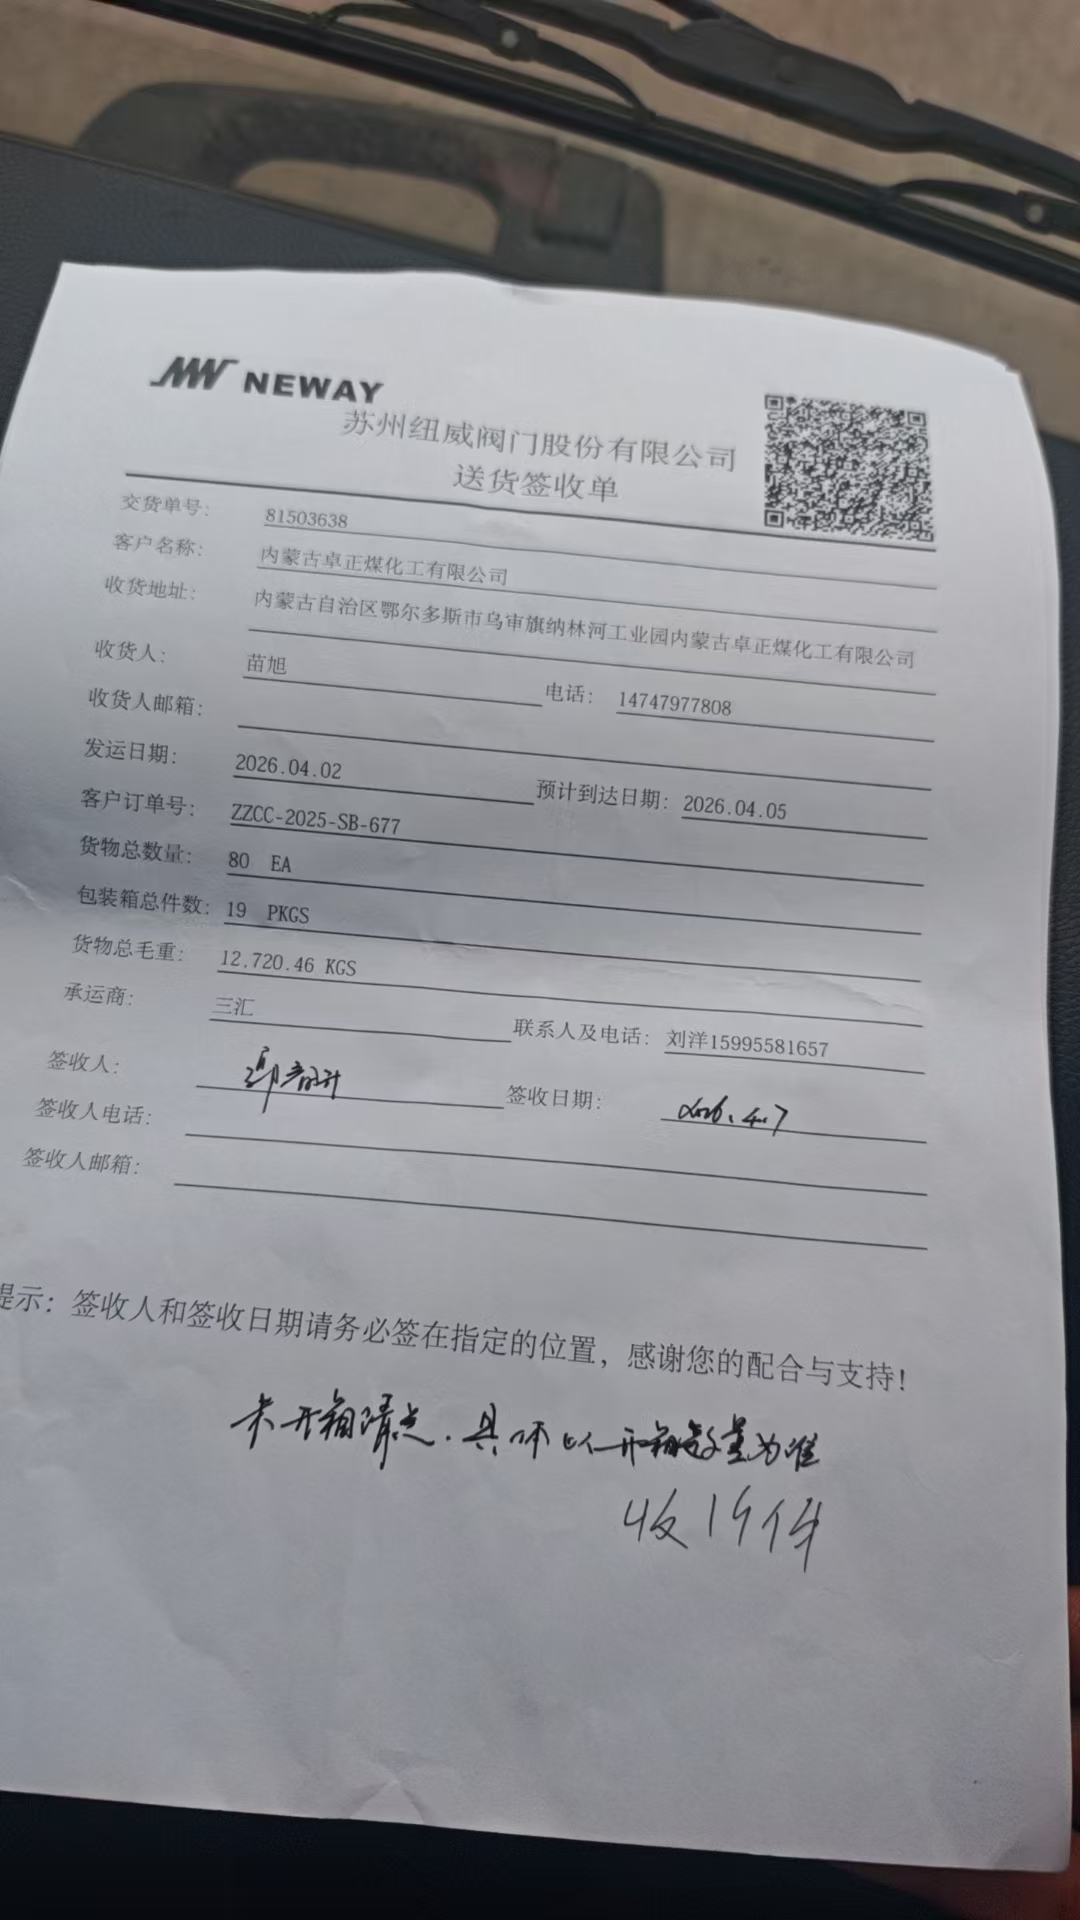 NEWAY
苏州纽威阀门股份有限公司
送货签收单
交货单号: 81503638
客户名称: 内蒙古卓正煤化工有限公司
收货地址: 内蒙古自治区鄂尔多斯市乌审旗纳林河工业园内蒙古卓正煤化工有限公司
收货人: 苗旭 电话: 14747977808
收货人邮箱:
发运日期: 2026.04.02 预计到达日期: 2026.04.05
客户订单号: ZZCC-2025-SB-677
货物总数量: 80 EA
包装箱总件数: 19 PKGS
货物总毛重: 12.720.46 KGS
承运商: 三汇 联系人及电话: 刘洋15995581657
签收人: 签收日期: 2026.4.7
签收人电话:
签收人邮箱:
提示: 签收人和签收日期请务必签在指定的位置, 感谢您的配合与支持!
未开箱清点.具体以开箱数量为准
收19件